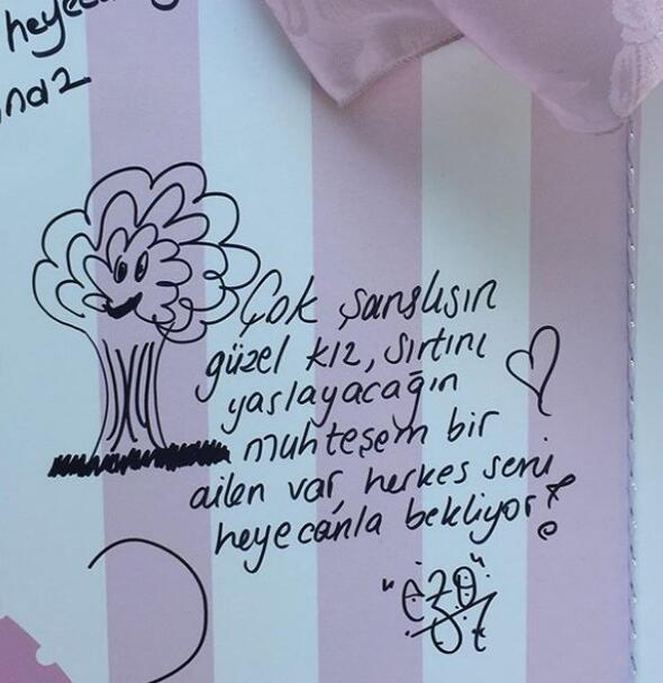 Çok şanslısın
güzel kız, sırtını
yaslayacağın
muhteşem bir
ailen var, herkes seni
heyecanla bekliyor!
"ezo"